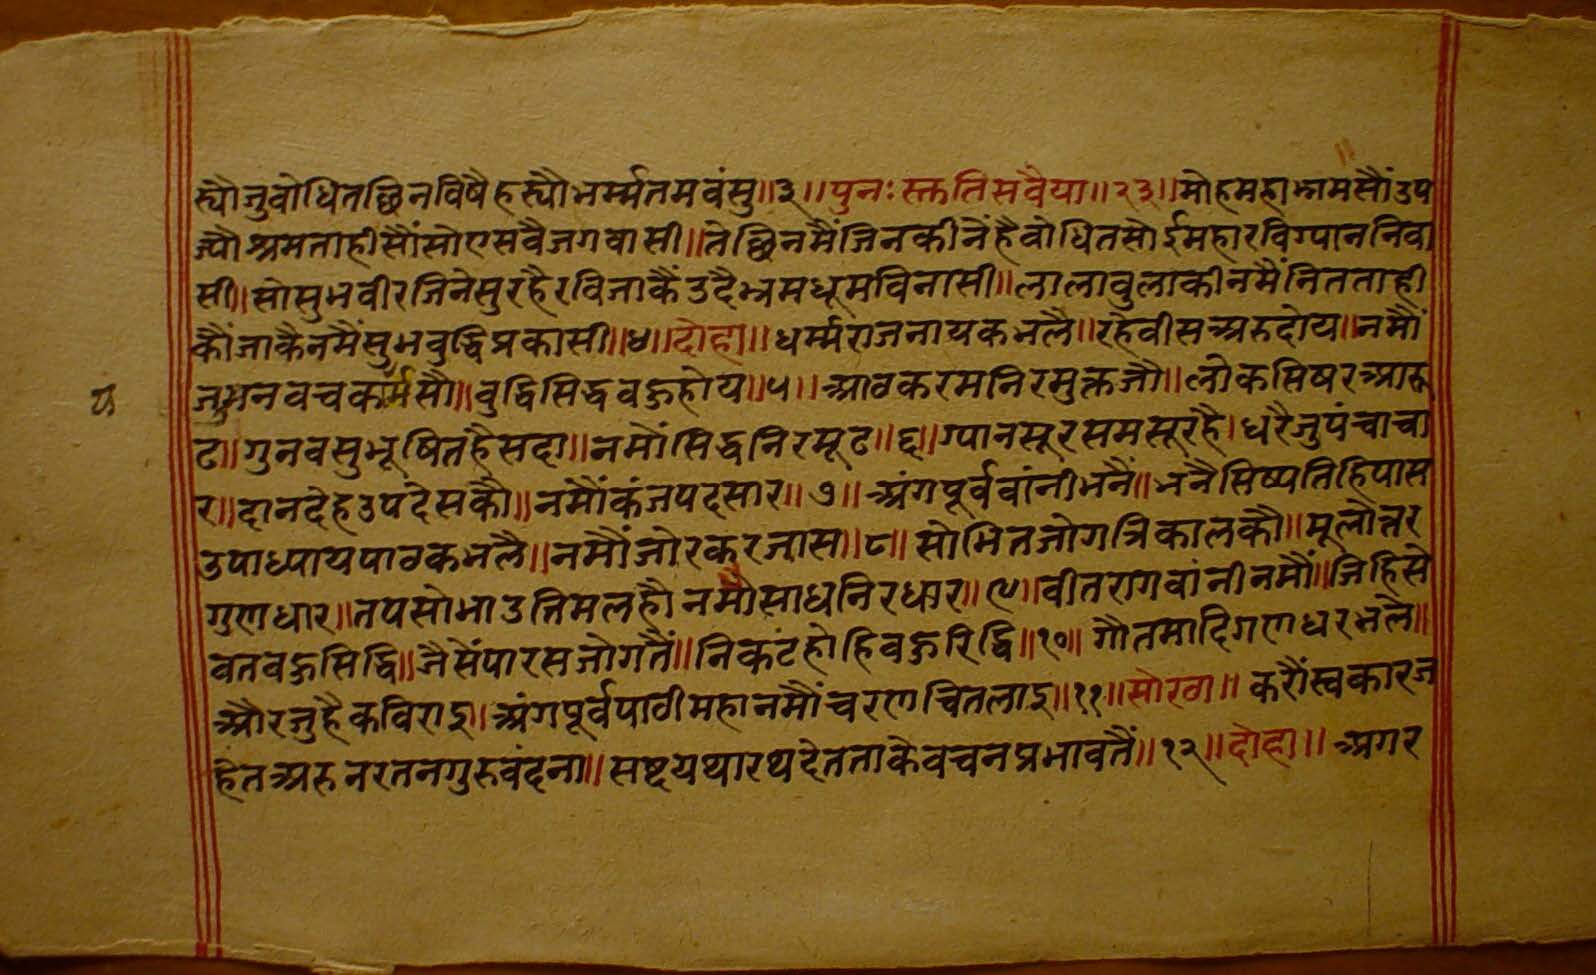 स्यौजुवोधितछिनविषैहस्यौभर्म्मतमवंसु॥३॥पुनःस्तुतिसवैया॥२३॥मोहमहाभ्रामसौंउप
ज्यौभ्रमताहीसौंसोएसवैजगवासी॥तेछिनमैंजिनकीनेंहैवोधितसोईमहारविग्याननिवा
सी॥सोसुभवीरजिनेसुरहैरविजाकैंउदैभ्रमधूमविनासी॥लालावुलाकीनमैंनितताही
कौंजाकैनमैंसुभवुद्धिप्रकासी॥४॥दोहा॥धर्म्मराजनायकभलै॥रहेवीसअरुदोय॥नमौं
जुमनवचकर्मसौ॥वुद्धिसिद्धवहुहोय॥५॥आठकरमनिरमुक्तजौ॥लोकसिषरआरू
ढ॥गुनवसुभूषितहैसदा॥नमौंसिद्धनिरमूढ॥६॥ग्यानसूरसमसूरहै।धरैजुपंचाचा
र॥दानदेहउपदेसकौ॥नमौंकंजपदसार॥७॥अंगपूर्ववांनीभनैं॥भनैसिष्यतिहिपास
उपाध्यायपाठकभलै॥नमौंजोरकरजास॥८॥सोभितजोगत्रिकालकौ॥मूलोत्तर
गुणधार॥तपसोभाउत्तिमलहौनमौसाधनिरधार॥९॥वीतरागवांनीनमौं॥जिहिसे
वतवहुसिद्धि॥जैसेंपारसजोगतैं॥निकटंहोहिवहुरिद्धि॥१०॥गौतमादिगणधरभले॥
औरजुहैकविराइ॥अंगपूर्वपाठीमहानमौंचरणचितलाइ॥११॥सोरठा॥करौंस्वकारज
हेतअरुनरतनगुरुवंदना॥सष्टयथारथदेतताकेवचनप्रभावतैं॥१२॥दोहा॥अगर